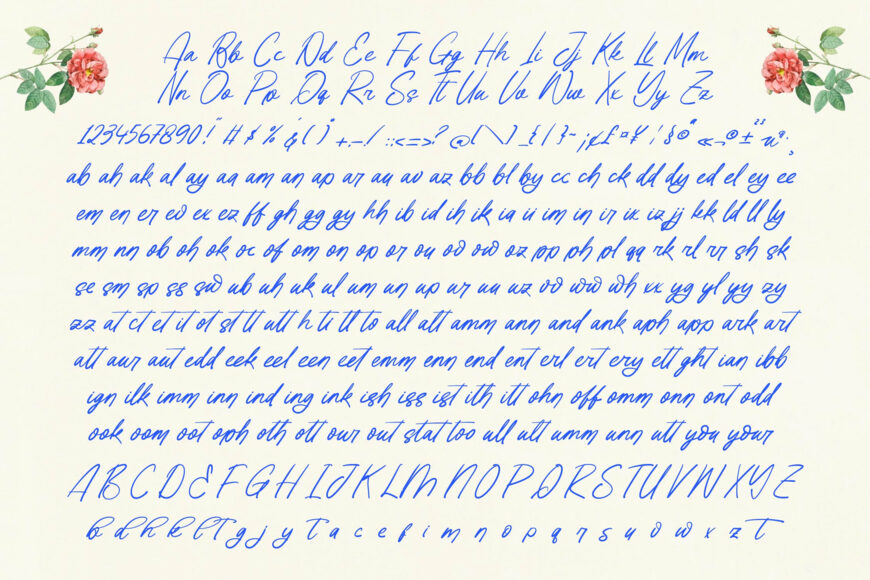 Aa Bb Cc Dd Ee Ff Gg Hh Ii Jj Kk Ll Mm
Nn Oo Pp Qq Rr Ss Tt Uu Vv Ww Xx Yy Zz
1234567890!" # $ % ' & ( ) * +,-./ :;<=>? @[\] _{|}~ ¡¢£¤¥ ¦§©ª «¬®±²³
ab ah ak al ay aa am an ap ar au av az bb bl by cc ch ck dd dy ed el ey ee
em en er ev ex ez ff gh gg gy hh ib id ih ik ia ii im in ir ix iz jj kk ld ll ly
mm nn ob oh ok oc of om on op or ou ov ow oz pp ph pl qq rk rl rr sh sk
se sm sp ss sw ub uh uk ul um un up ur uu uz vv ww wh xx yg yl yy zy
zz at ct et it ot st tt utt h ti tl to all alt amm ann and ank aph app ark art
att aur aut edd eek eel een eet emm enn end ent erl ert ery ett ght ian ibb
ign ilk imm inn ind ing ink ish iss ist ith itt ohn off omm onn ont odd
ook oom oot oph oth ott our out stat too ull ult umm unn utt you your
A B C D E F G H I J K L M N O P Q R S T U V W X Y Z
b d h k l T g j y t a c e f i m n o p q r s u v w x z T